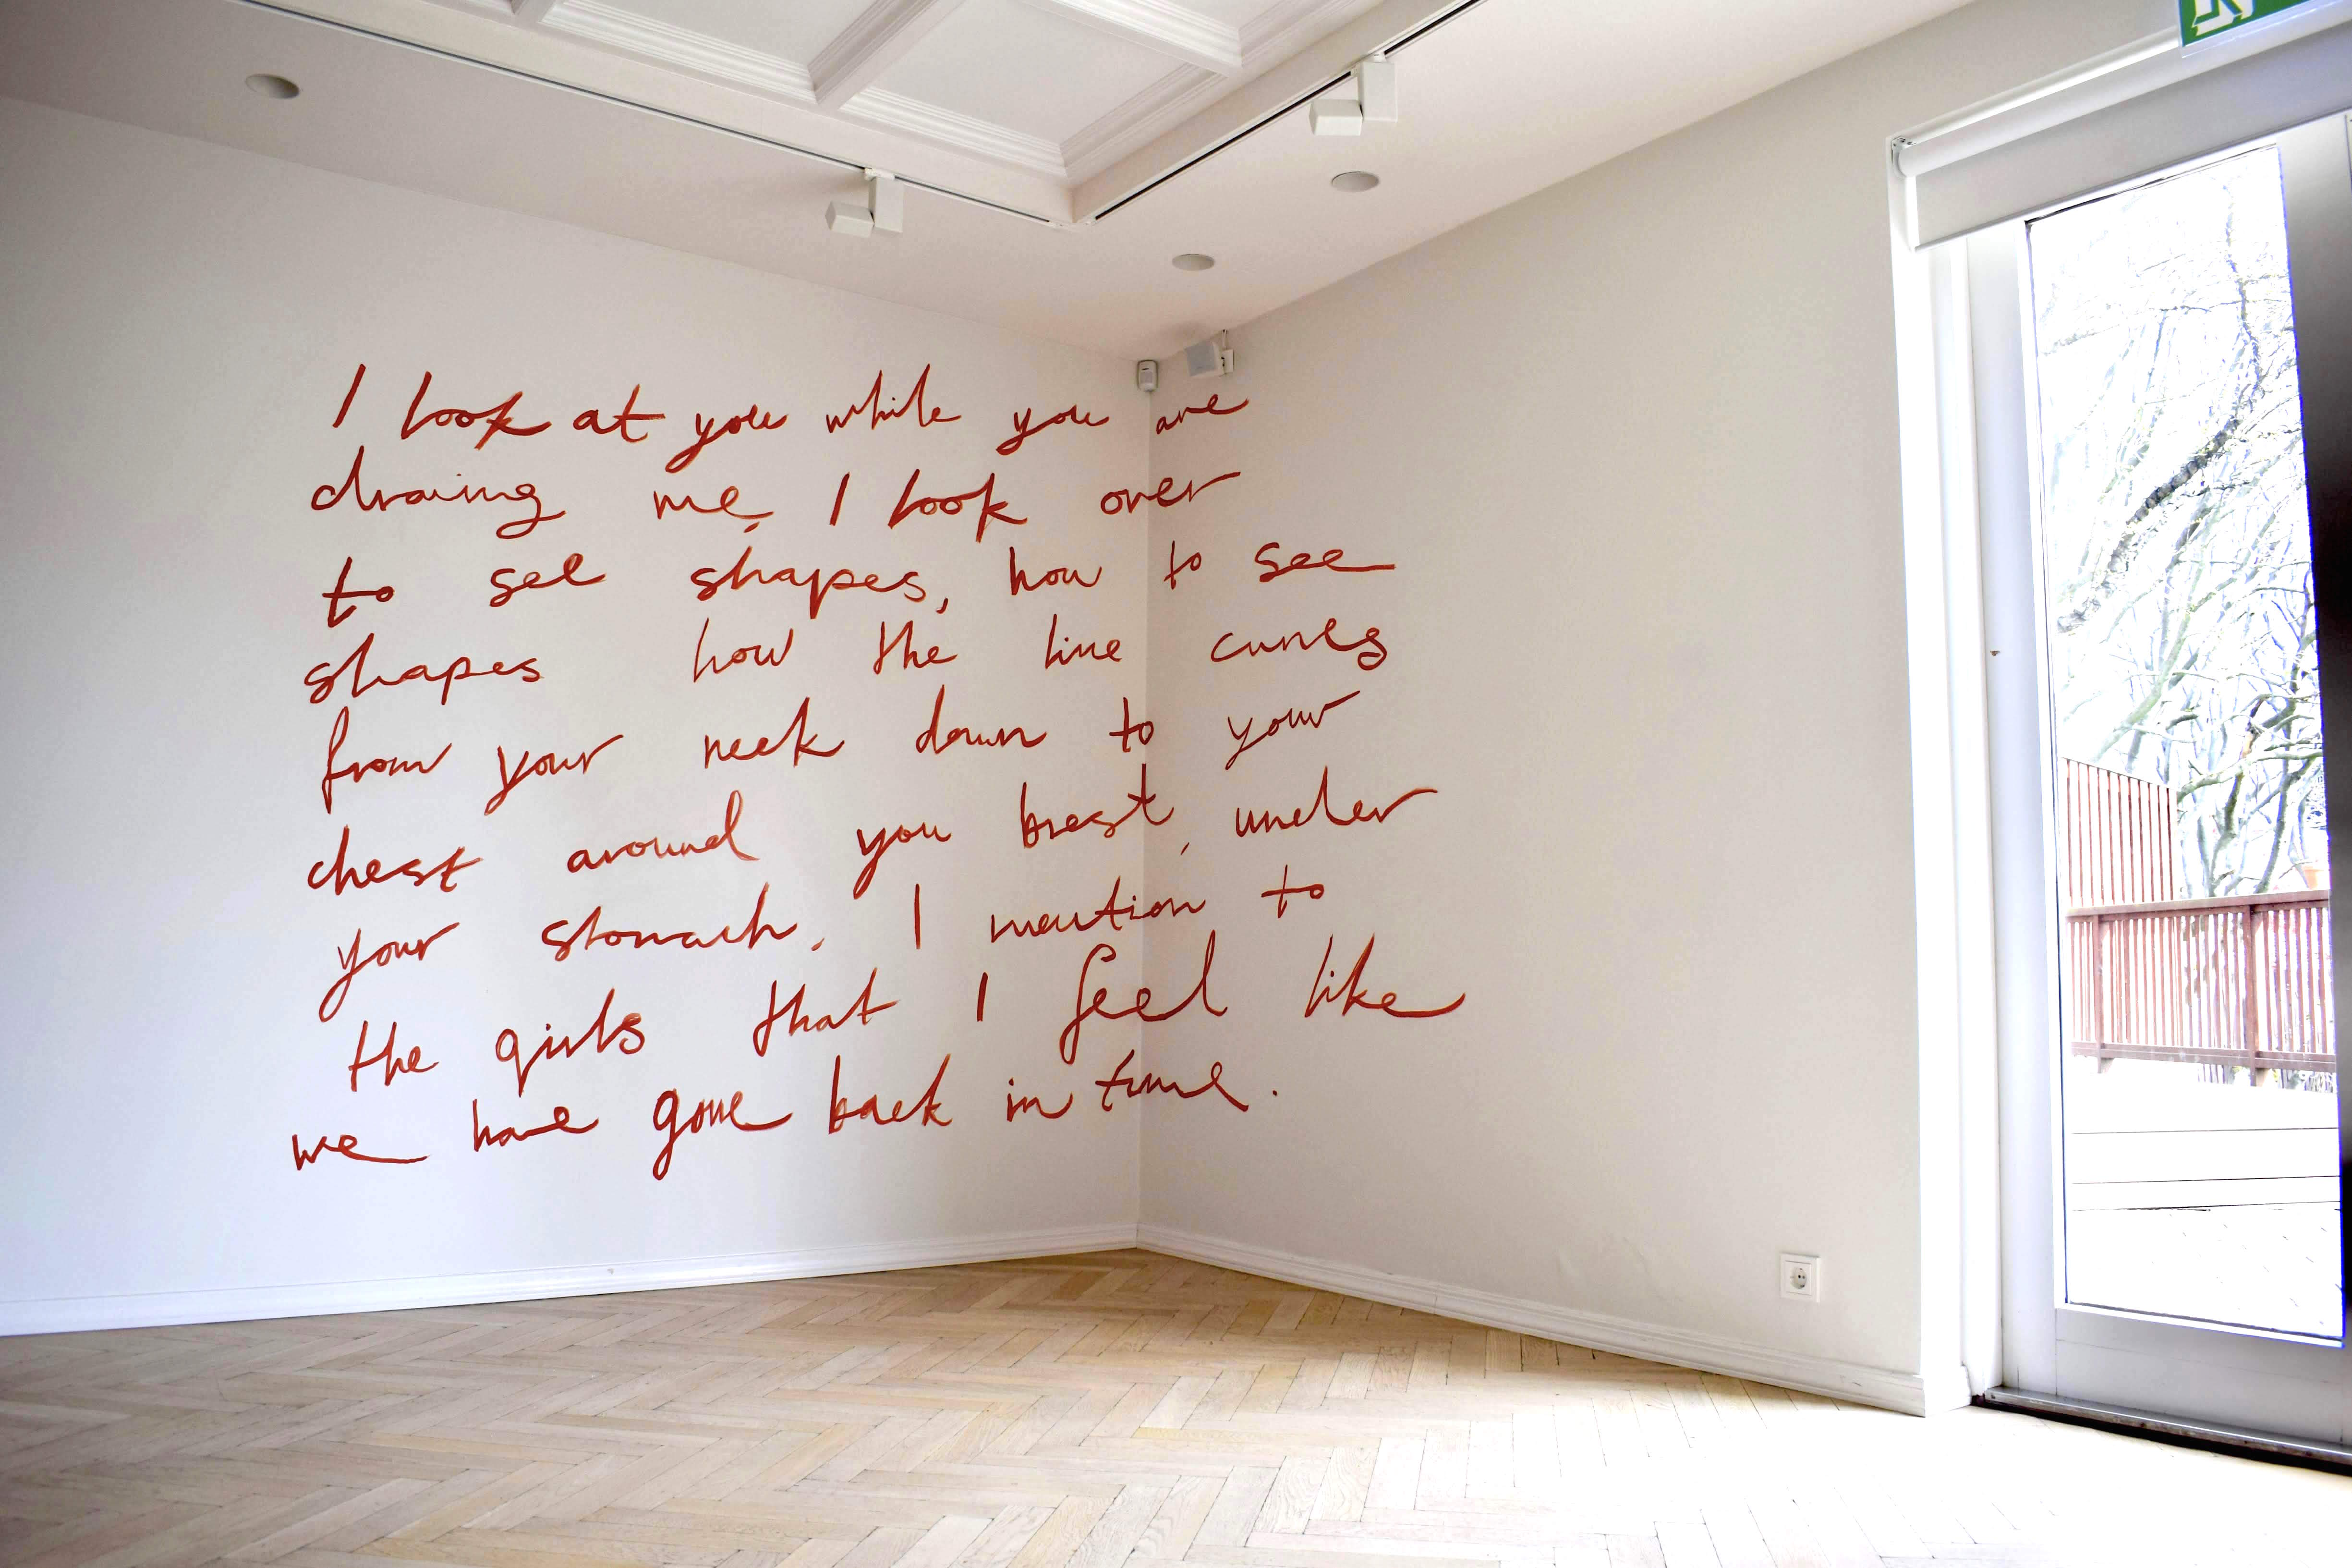 I look at you while you are
draing me, I look over
to see shapes, how to see
shapes how the line curves
from your neck down to your
chest around you brest, under
your stomach, I mention to
the girls that I feel like
we have gone back in time.